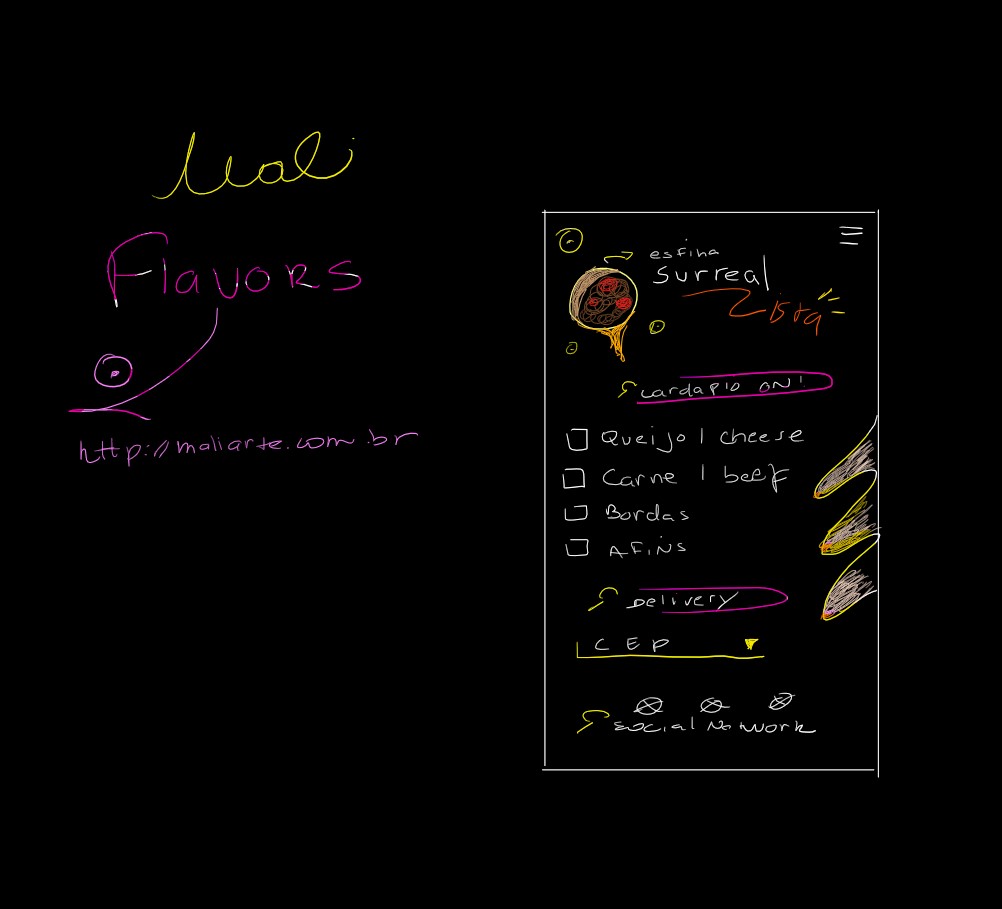 Mali
Flavors
http://maliarte.com.br
esfiha
Surreal
ista
Cardapio ON!
Queijo | cheese
Carne | beef
Bordas
AFiNS
Delivery
CEP
Social Network